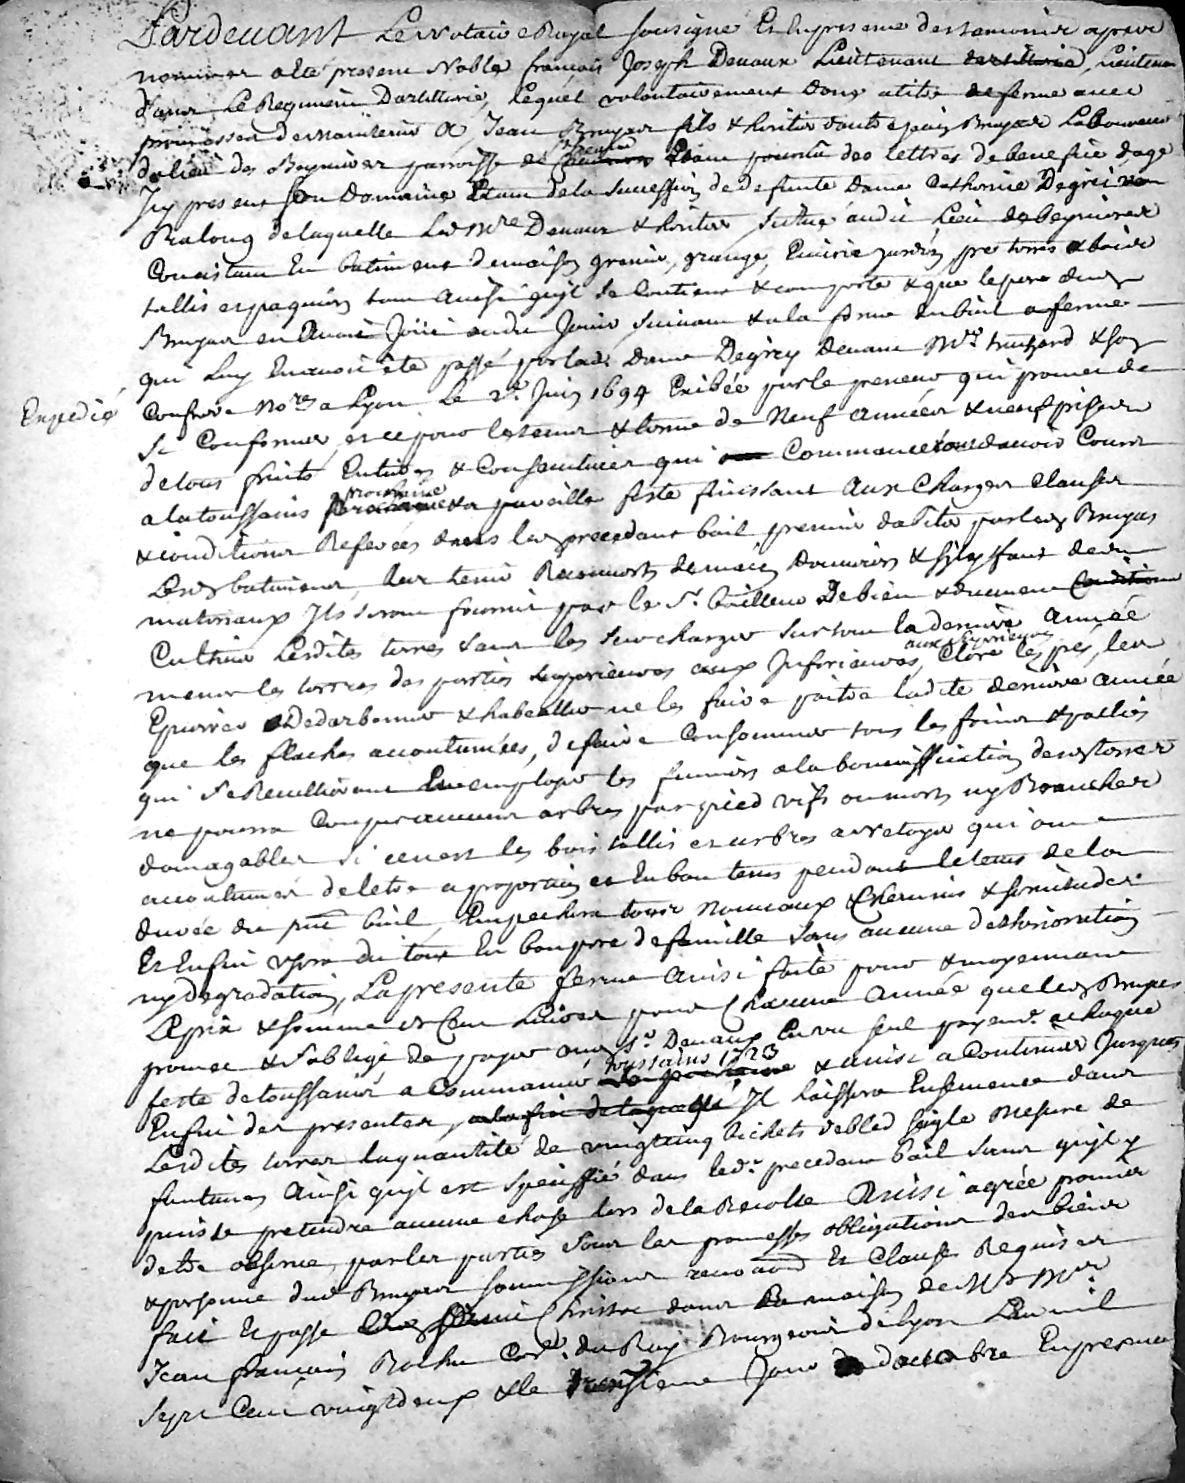 Pardevant Le Notaire Royal soussigné Et En presence des temoins apres
nommes a été present Noble françois Joseph Devaux Lieutenant dartillerie, Lieutenant
dans Le Regiment Dartillerie, Lequel volontairement donne atitre de ferme avec
promesse de maintenir A Jean Bruyas fils & heritier dautre Bruyas Laboureur
du lieu des Beyniere parroisse de pourvu des lettres de benefice dage
Icy present Son Domaine de la Succession de deffunte dame Catherine Degrei
de laquelle Led Mre Devaux & heritier Situé audit Lieu de Beynieres
Consistant En batiment de maison grenier, grange, Ecurie jardin, pre terres & bois
tallis et paquiers tout Ainsi quil se Contient & comporte & que le pere dud
Bruyas en Avoit Joüi ou du Jouir Suivant & a la forme du bail a ferme
qui Luy En avoit été passé par lad. Dame Degrey devant Mre & son
Expedié Confrere Nores a Lyon Le 2e Juin 1694 Exibée par le preneur qui promet de
Se Conformer, et ce pour le tems & terme de Neuf Années & neuf prises
de tous fruits Entieres & Consecutives qui Commencé Courir
a la toussaints prochaine & a pareille feste finissant Aux Charges Clauses
& conditions Referées dans led precedent bail, premier par led Bruyas
Lesd batimens, & sil faut des
materiaux Ils seront fournis par le Sr. bailleur De bien & duement
Cultiver Lesdites terres Sans les surcharger surtout la derniere Année
mener les terres des parties superieures aux Inferieures, aux superieures Clore les pres, les
Epierrer & habealler ne les faire paitre ladite derniere année
que les flaches accoutumées, de faire Consommer tous les foins & pailles
qui Se Recueilliront En employer les fumiers a la bonniffication desd terres
ne pourra Couper aucuns arbres par pied vifs ou morts ny Brancher
domagables Si ce nest les bois tallis et arbres qui ont
accoutumés de letre a proportion et En bon tems pendant le tems de la
durée du pnt bail, Empechera tous Nouveaux Chemins & servitudes
Et Enfin usera du tout En bon pere de famille sans aucune detherioration
ny degradation, La presente ferme Ainsi faite pour & moyennant
Le prix & somme de Cent Livres pour Chacune Année que led Bruyas
promet & Soblige de payer aud Sr. Devaux En un seul payemt. a chaque
feste de toussaints a Commancer Toussaints 1723 & ainsi a Continuer Jusques
Enfin des presentes, a la fin de laquelle Il laissera Ensemencé dans
Lesdites terres la quantité de vingt cinq bichets de bled seigle Mesure de
funtanes Ainsi quil est Speciffié dans led. precedent bail Sans quil y
puisse pretendre aucune chose lors de la Recolte Ainsi agrée promis
detre observé, par les parties sous les promesses obligations des biens
& personne dud Bruyas Soumissions renoaõns Et Clauses Requises
fait Et passé dans La maison de Mr Mre
Jean françois Rochu Conr. du Roy Bourgeois de Lyon Lan mil
Sept Cent vingt deux & le treizieme Jour d octobre En presence